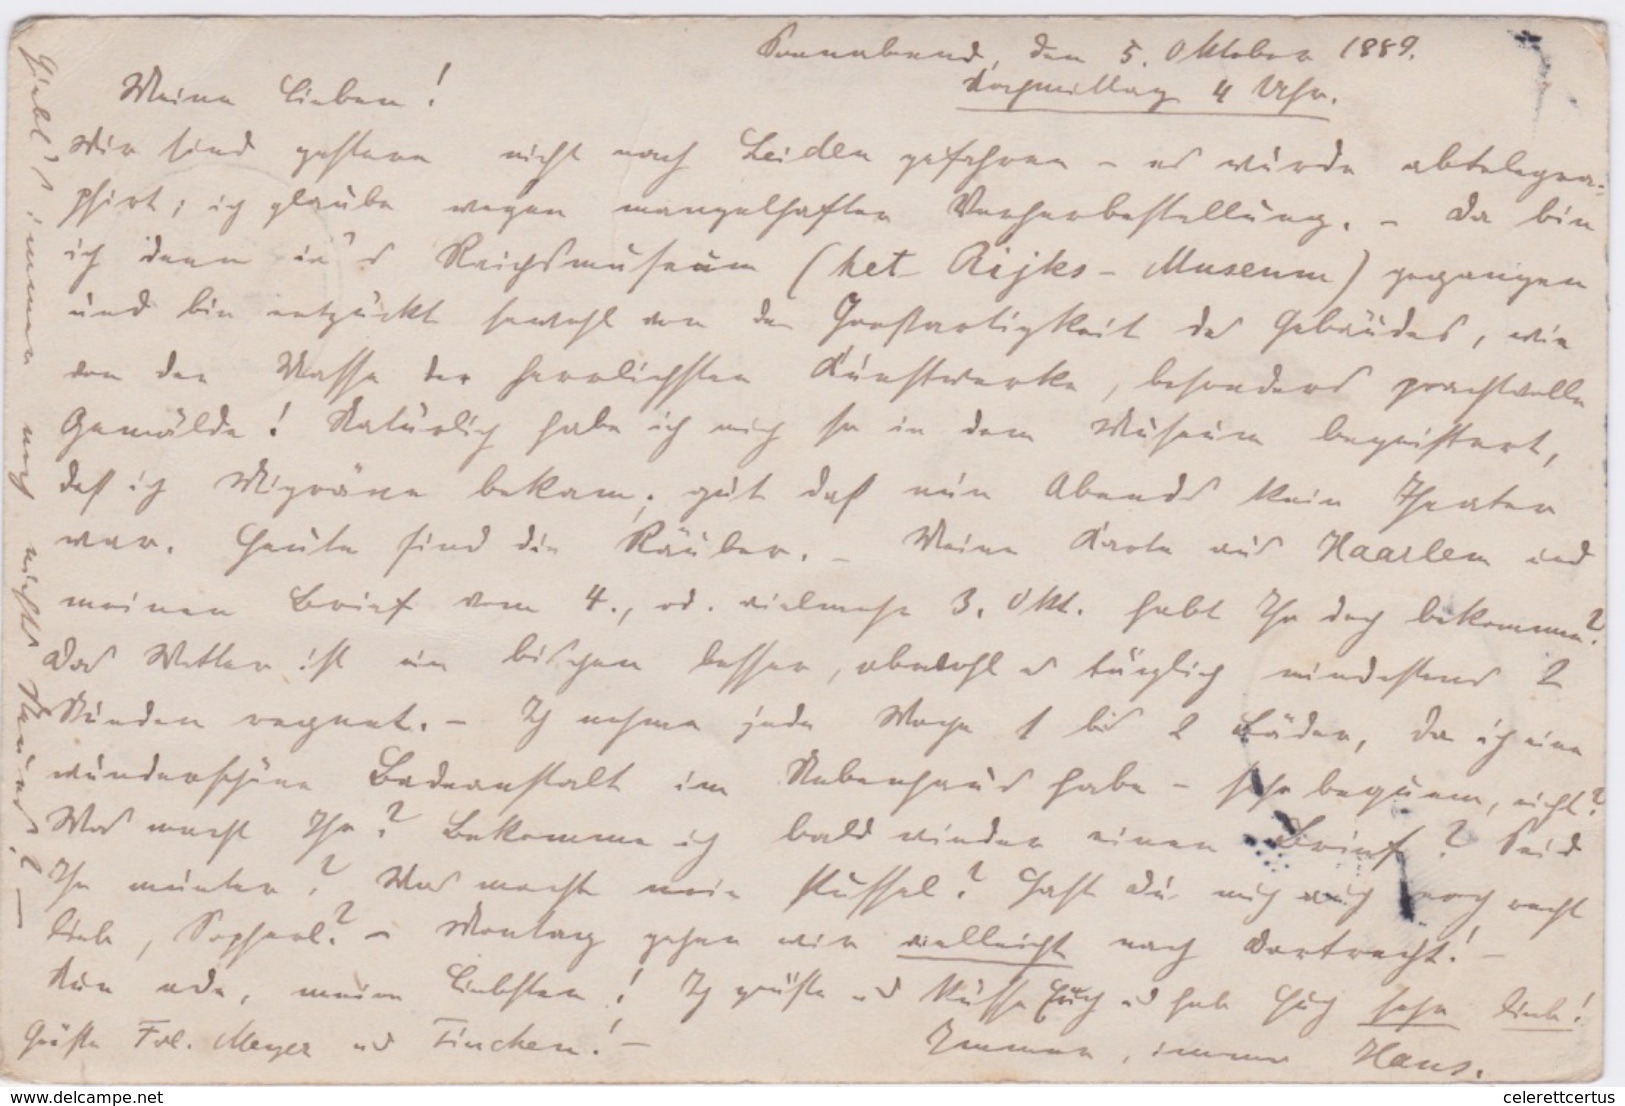 Sonnabend, den 5. Oktober 1889.
Nachmittag 4 Uhr.
Meine Lieben!
Wir sind gestern nicht nach Leiden gefahren – es wurde abtelegra-
phirt; ich glaube wegen mangelhafter Vorherbestellung. – Da bin
ich denn in's Reichsmuseum (het Rijks-Museum) gegangen
und bin entzückt sowohl von der Großartigkeit des Gebäudes, wie
von der Masse der herrlichsten Kunstwerke, besonders prachtvolle
Gemälde! Natürlich habe ich mich so in dem Museum begeistert,
daß ich Migräne bekam; gut daß nun Abends kein Theater
war. Heute sind die Räuber. – Meine Karte aus Haarlem und
meinen Brief vom 4., od. vielmehr 3. Okt. habt Ihr doch bekommen?
Das Wetter ist ein bischen besser, obwohl es täglich mindestens 2
Stunden regnet. – Ich nehme jede Woche 1 bis 2 Bäder, da ich eine
wunderschöne Badeanstalt im Nebenhaus habe – sehr bequem, nicht?
Was macht Ihr? Bekomme ich bald wieder einen Brief? Seid
Ihr munter? Was macht mein Stussel? Hast Du mich auch noch recht
lieb, Sopherl? – Montag gehen wir vielleicht nach Dortrecht! –
Nun ade, meine Liebsten! Ich grüße und küsse Euch und hab Euch sehr lieb!
Grüße Frl. Meyer und Finchen! –
Immer, immer Hans.
Giebt's immer noch nichts Neues? –
celerettcertus
delcampe.net